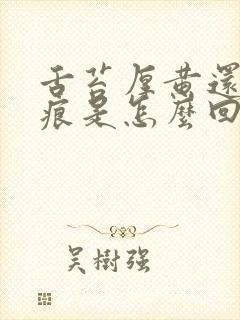 舌苔厚黄還
痕是怎麼回
吴樹强